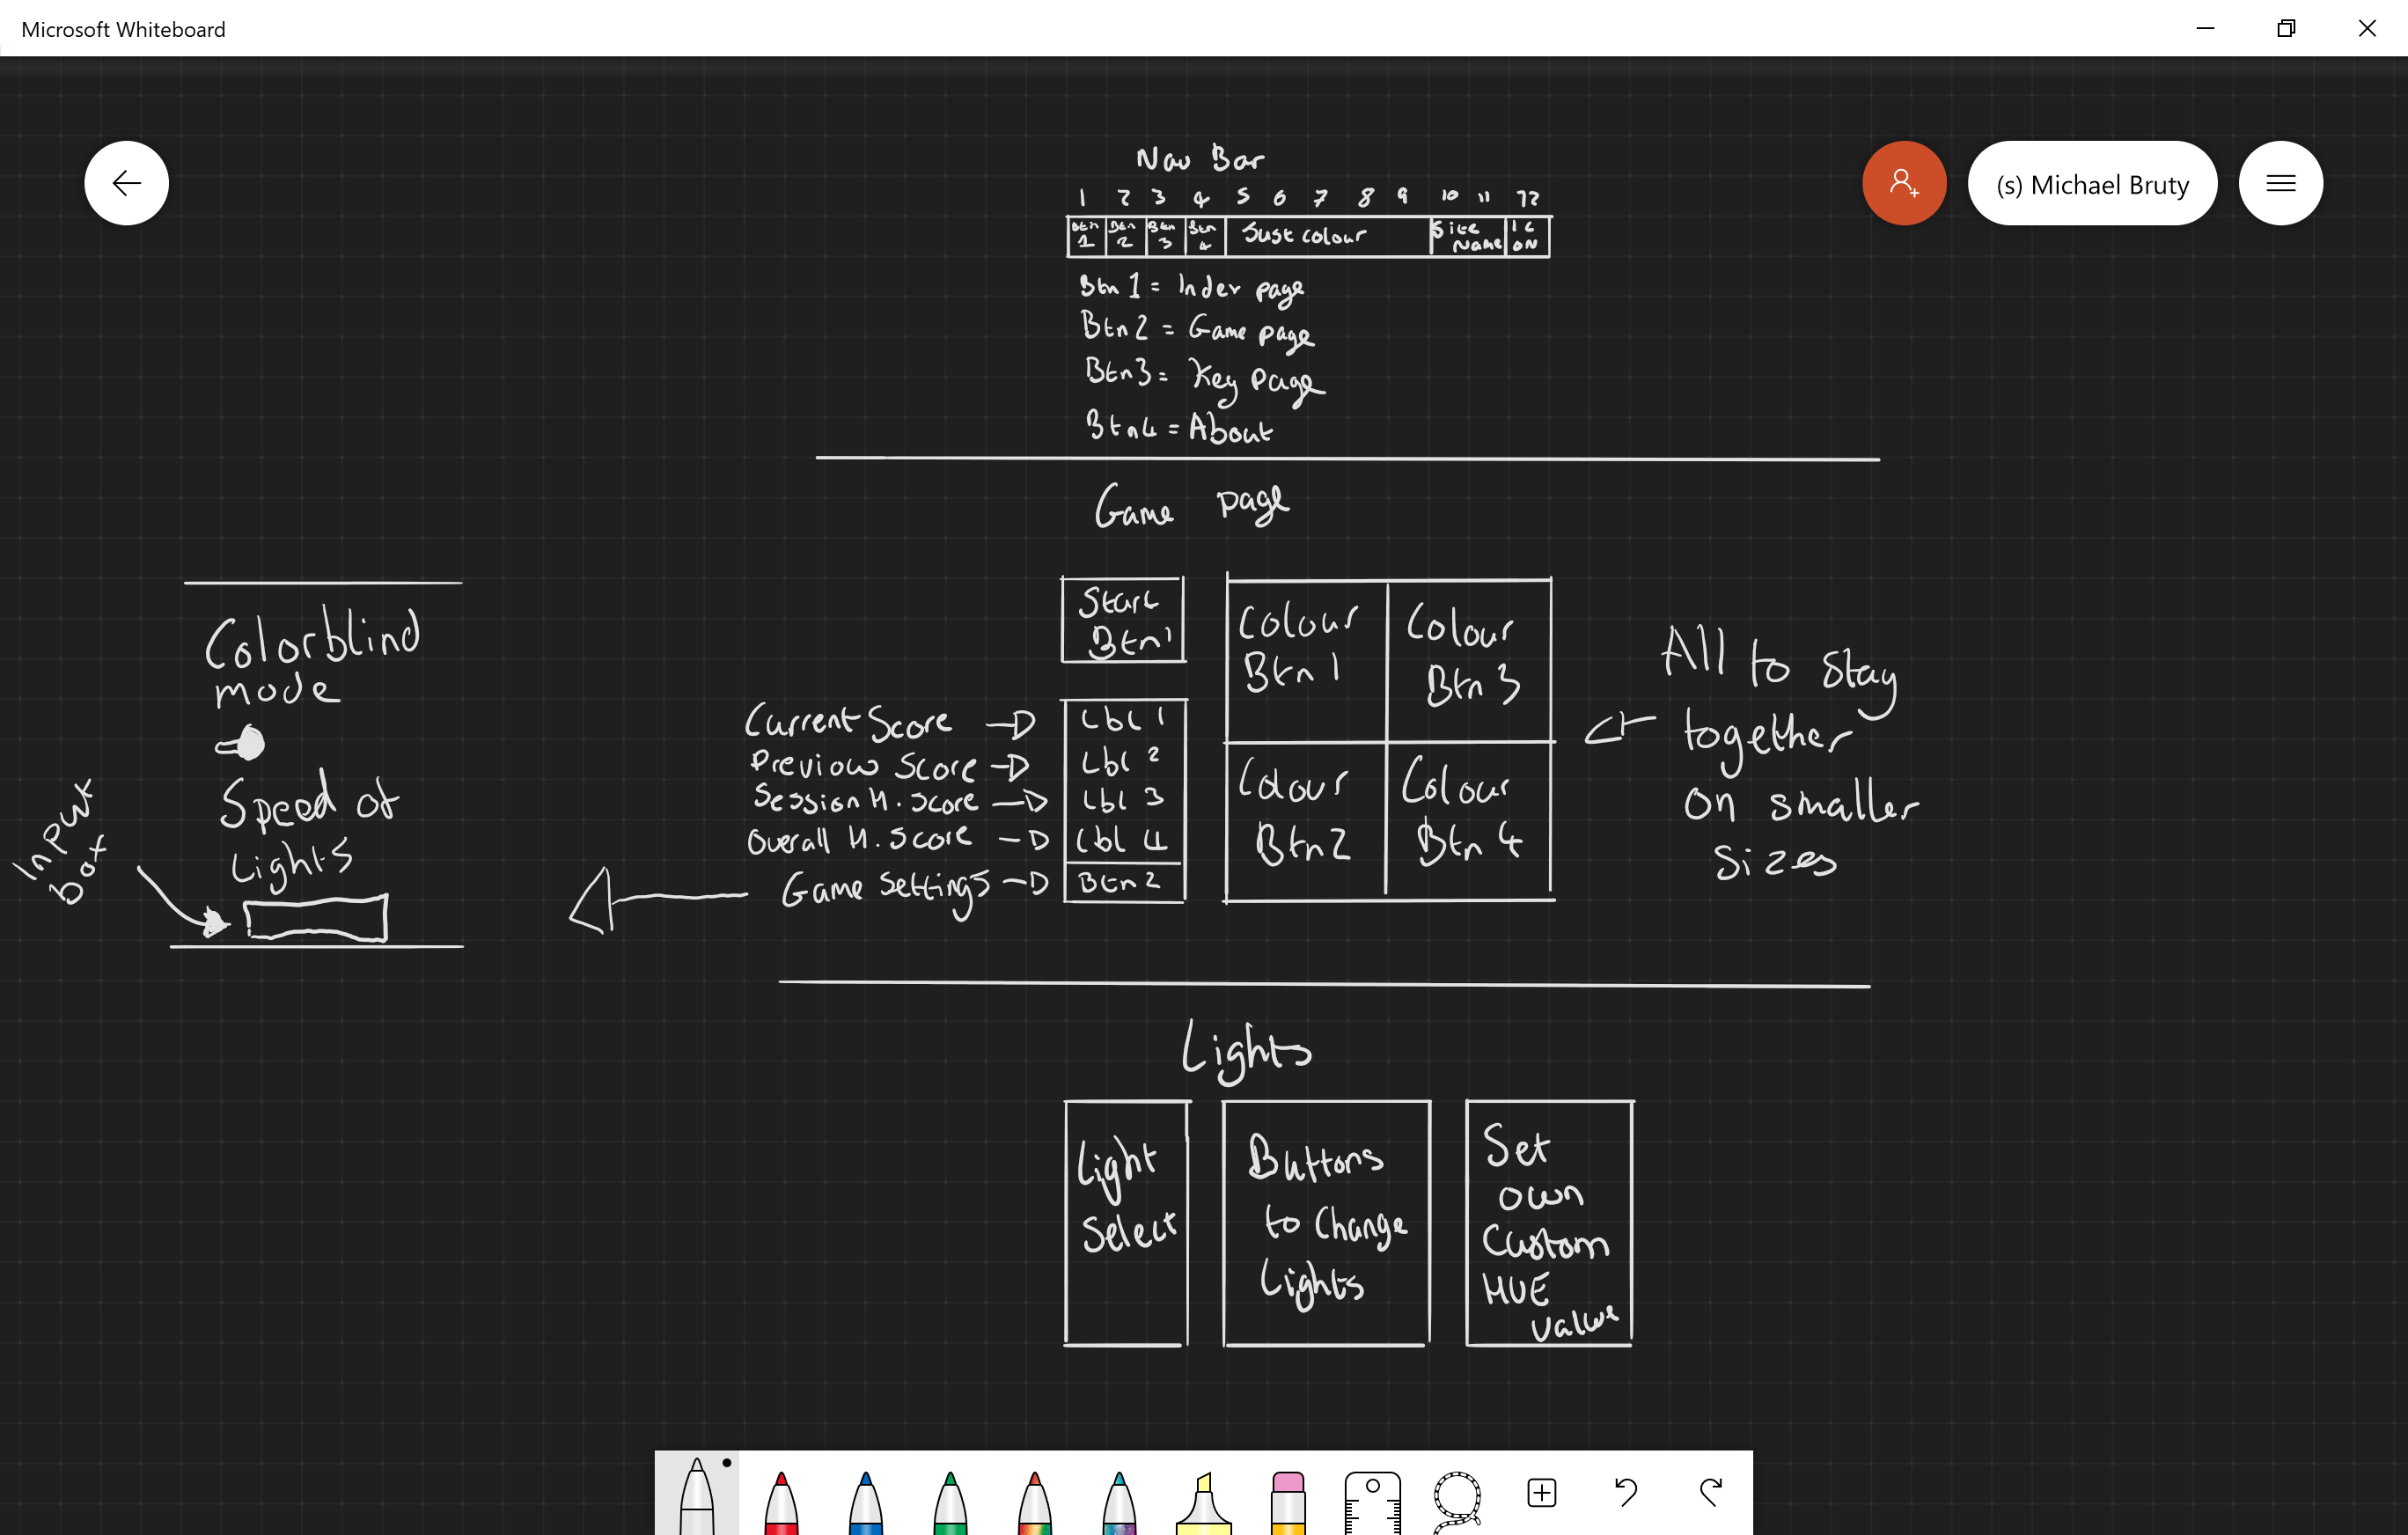 Microsoft Whiteboard
(s) Michael Bruty
Nav Bar
1 2 3 4 5 6 7 8 9 10 11 12
Btn 1 Btn 2 Btn 3 Btn 4 Just colour Site Name IC ON
Btn 1 = Index page
Btn 2 = Game page
Btn 3 = Key Page
Btn 4 = About
Game page
Start
Btn 1
Current Score
Lbl 1
Previous Score
Lbl 2
Session H. Score
Lbl 3
Overall H. Score
Lbl 4
Game Settings
Btn 2
Colour
Btn 1
Colour
Btn 3
Colour
Btn 2
Colour
Btn 4
All to stay
together
on smaller
sizes
Colorblind
mode
Speed of
Lights
Input
box
Lights
Light
Select
Buttons
to Change
Lights
Set
own
Custom
HUE
value